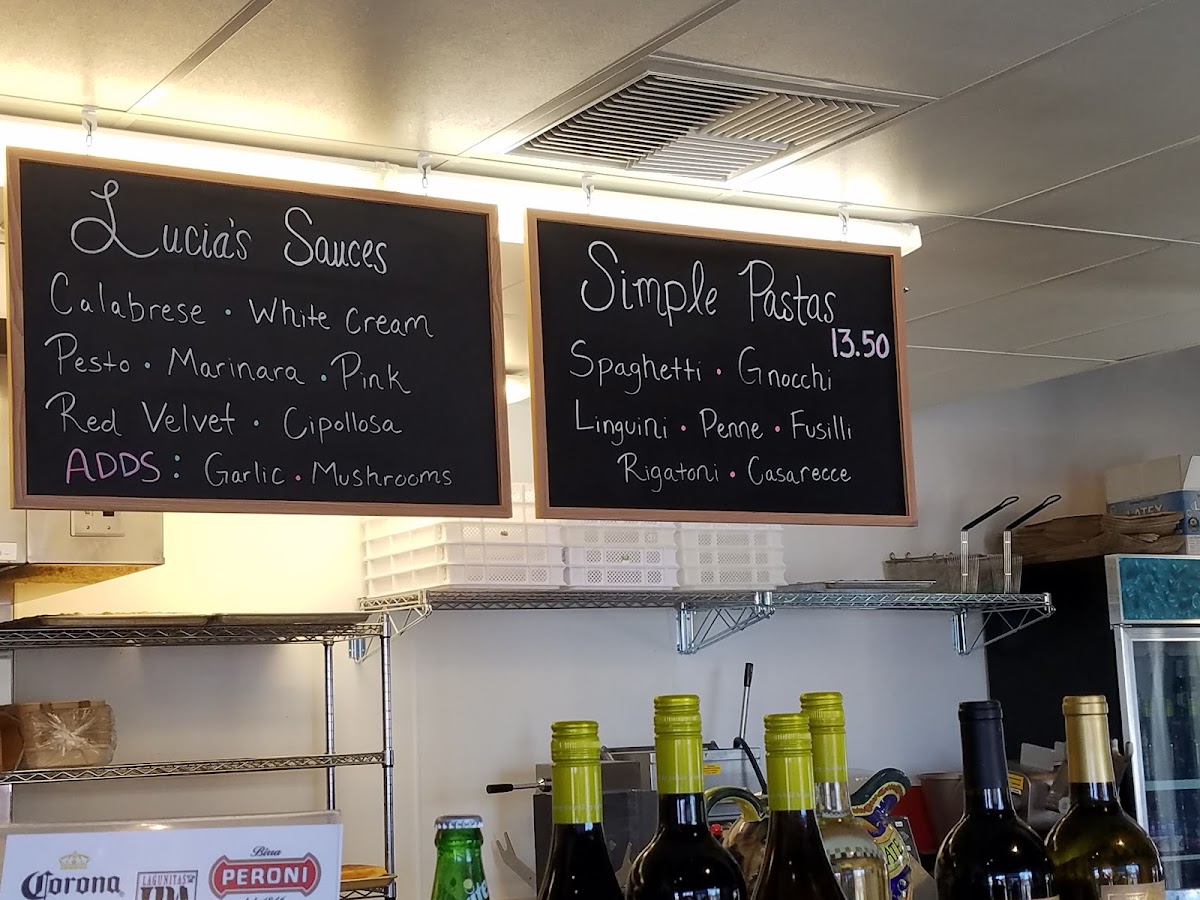 Lucia's Sauces
Calabrese • White Cream
Pesto • Marinara • Pink
Red Velvet • Cipollosa
ADDS: Garlic • Mushrooms
Simple Pastas
13.50
Spaghetti • Gnocchi
Linguini • Penne • Fusilli
Rigatoni • Casarecce
LATEX
Corona
LAGUNITAS
IPA
Birra
PERONI